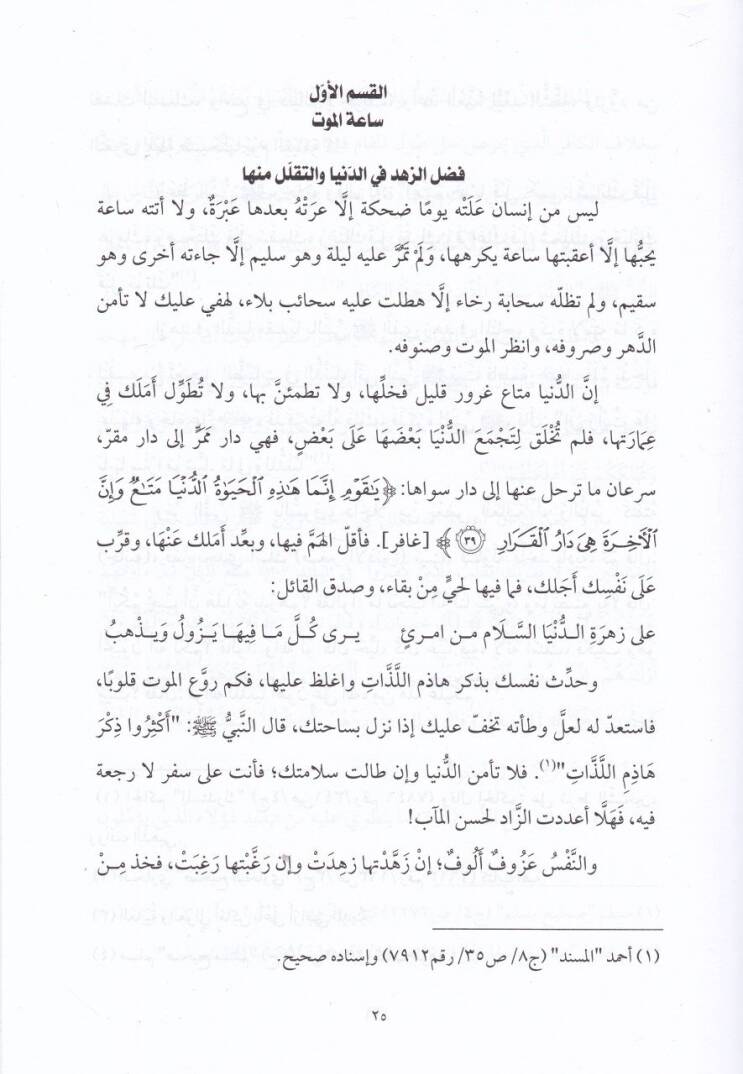 القسم الأوّل
ساعة الموت
فضل الزهد في الدّنيا والتقلّل منها
ليس من إنسان عَلَتْه يومًا ضحكة إلَّا عرَتْهُ بعدها عَبْرَةٌ، ولا أتته ساعة
يحبُّها إلَّا أعقبتها ساعة يكرهها، وَلَمْ تمُرَّ عليه ليلة وهو سليم إلَّا جاءته أخرى وهو
سقيم، ولم تظلّه سحابة رخاء إلَّا هطلت عليه سحائب بلاء، لهفي عليك لا تأمن
الدَّهر وصروفه، وانظر الموت وصنوفه.
إنَّ الدُّنيا متاع غرور قليل فخلِّها، ولا تطمئنَّ بها، ولا تُطَوِّل أَمَلَك فِي
عِمَارَتها، فلم تُخْلَق لِتَجْمَعَ الدُّنْيَا بَعْضَهَا عَلَى بَعْضٍ، فهي دار ممَرٍّ إلى دار مقرّ،
سرعان ما ترحل عنها إلى دار سواها: ﴿يَٰقَوۡمِ إِنَّمَا هَٰذِهِ ٱلۡحَيَوٰةُ ٱلدُّنۡيَا مَتَٰعٌ وَإِنَّ
ٱلۡأٓخِرَةَ هِيَ دَارُ ٱلۡقَرَارِ ٣٩﴾ [غافر]. فأقلّ الهمّ فيها، وبعِّد أَمَلك عَنْهَا، وقرِّب
عَلَى نَفْسِك أَجَلك، فما فيها لحيٍّ مِنْ بقاء، وصدق القائل:
على زهرَةِ الـدُّنْيَا السَّلَام مـن امـرئٍ يـرى كُـلَّ مَـا فِيهَـا يَـزُولُ وَيَـذْهبُ
وحدِّث نفسك بذكر هاذم اللَّذَّاتِ واغلظ عليها، فكم روَّع الموت قلوبًا،
فاستعدّ له لعلَّ وطأته تخفّ عليك إذا نزل بساحتك، قال النَّبيُّ ﷺ: "أَكْثِرُوا ذِكْرَ
هَاذِمِ اللَّذَّاتِ"(١). فلا تأمن الدُّنيا وإن طالت سلامتك؛ فأنت على سفر لا رجعة
فيه، فَهَلَّا أعددت الزَّاد لحسن المآب!
والنَّفْسُ عَزُوفٌ أَلُوفٌ؛ إنْ زَهَّدْتها زهِدَتْ وإن رَغَّبْتها رَغِبَتْ، فخذ مـِنْ
(١) أحمد "المسند" (ج٨/ ص٣٥/ رقم٧٩١٢) وإسناده صحيح.
٢٥